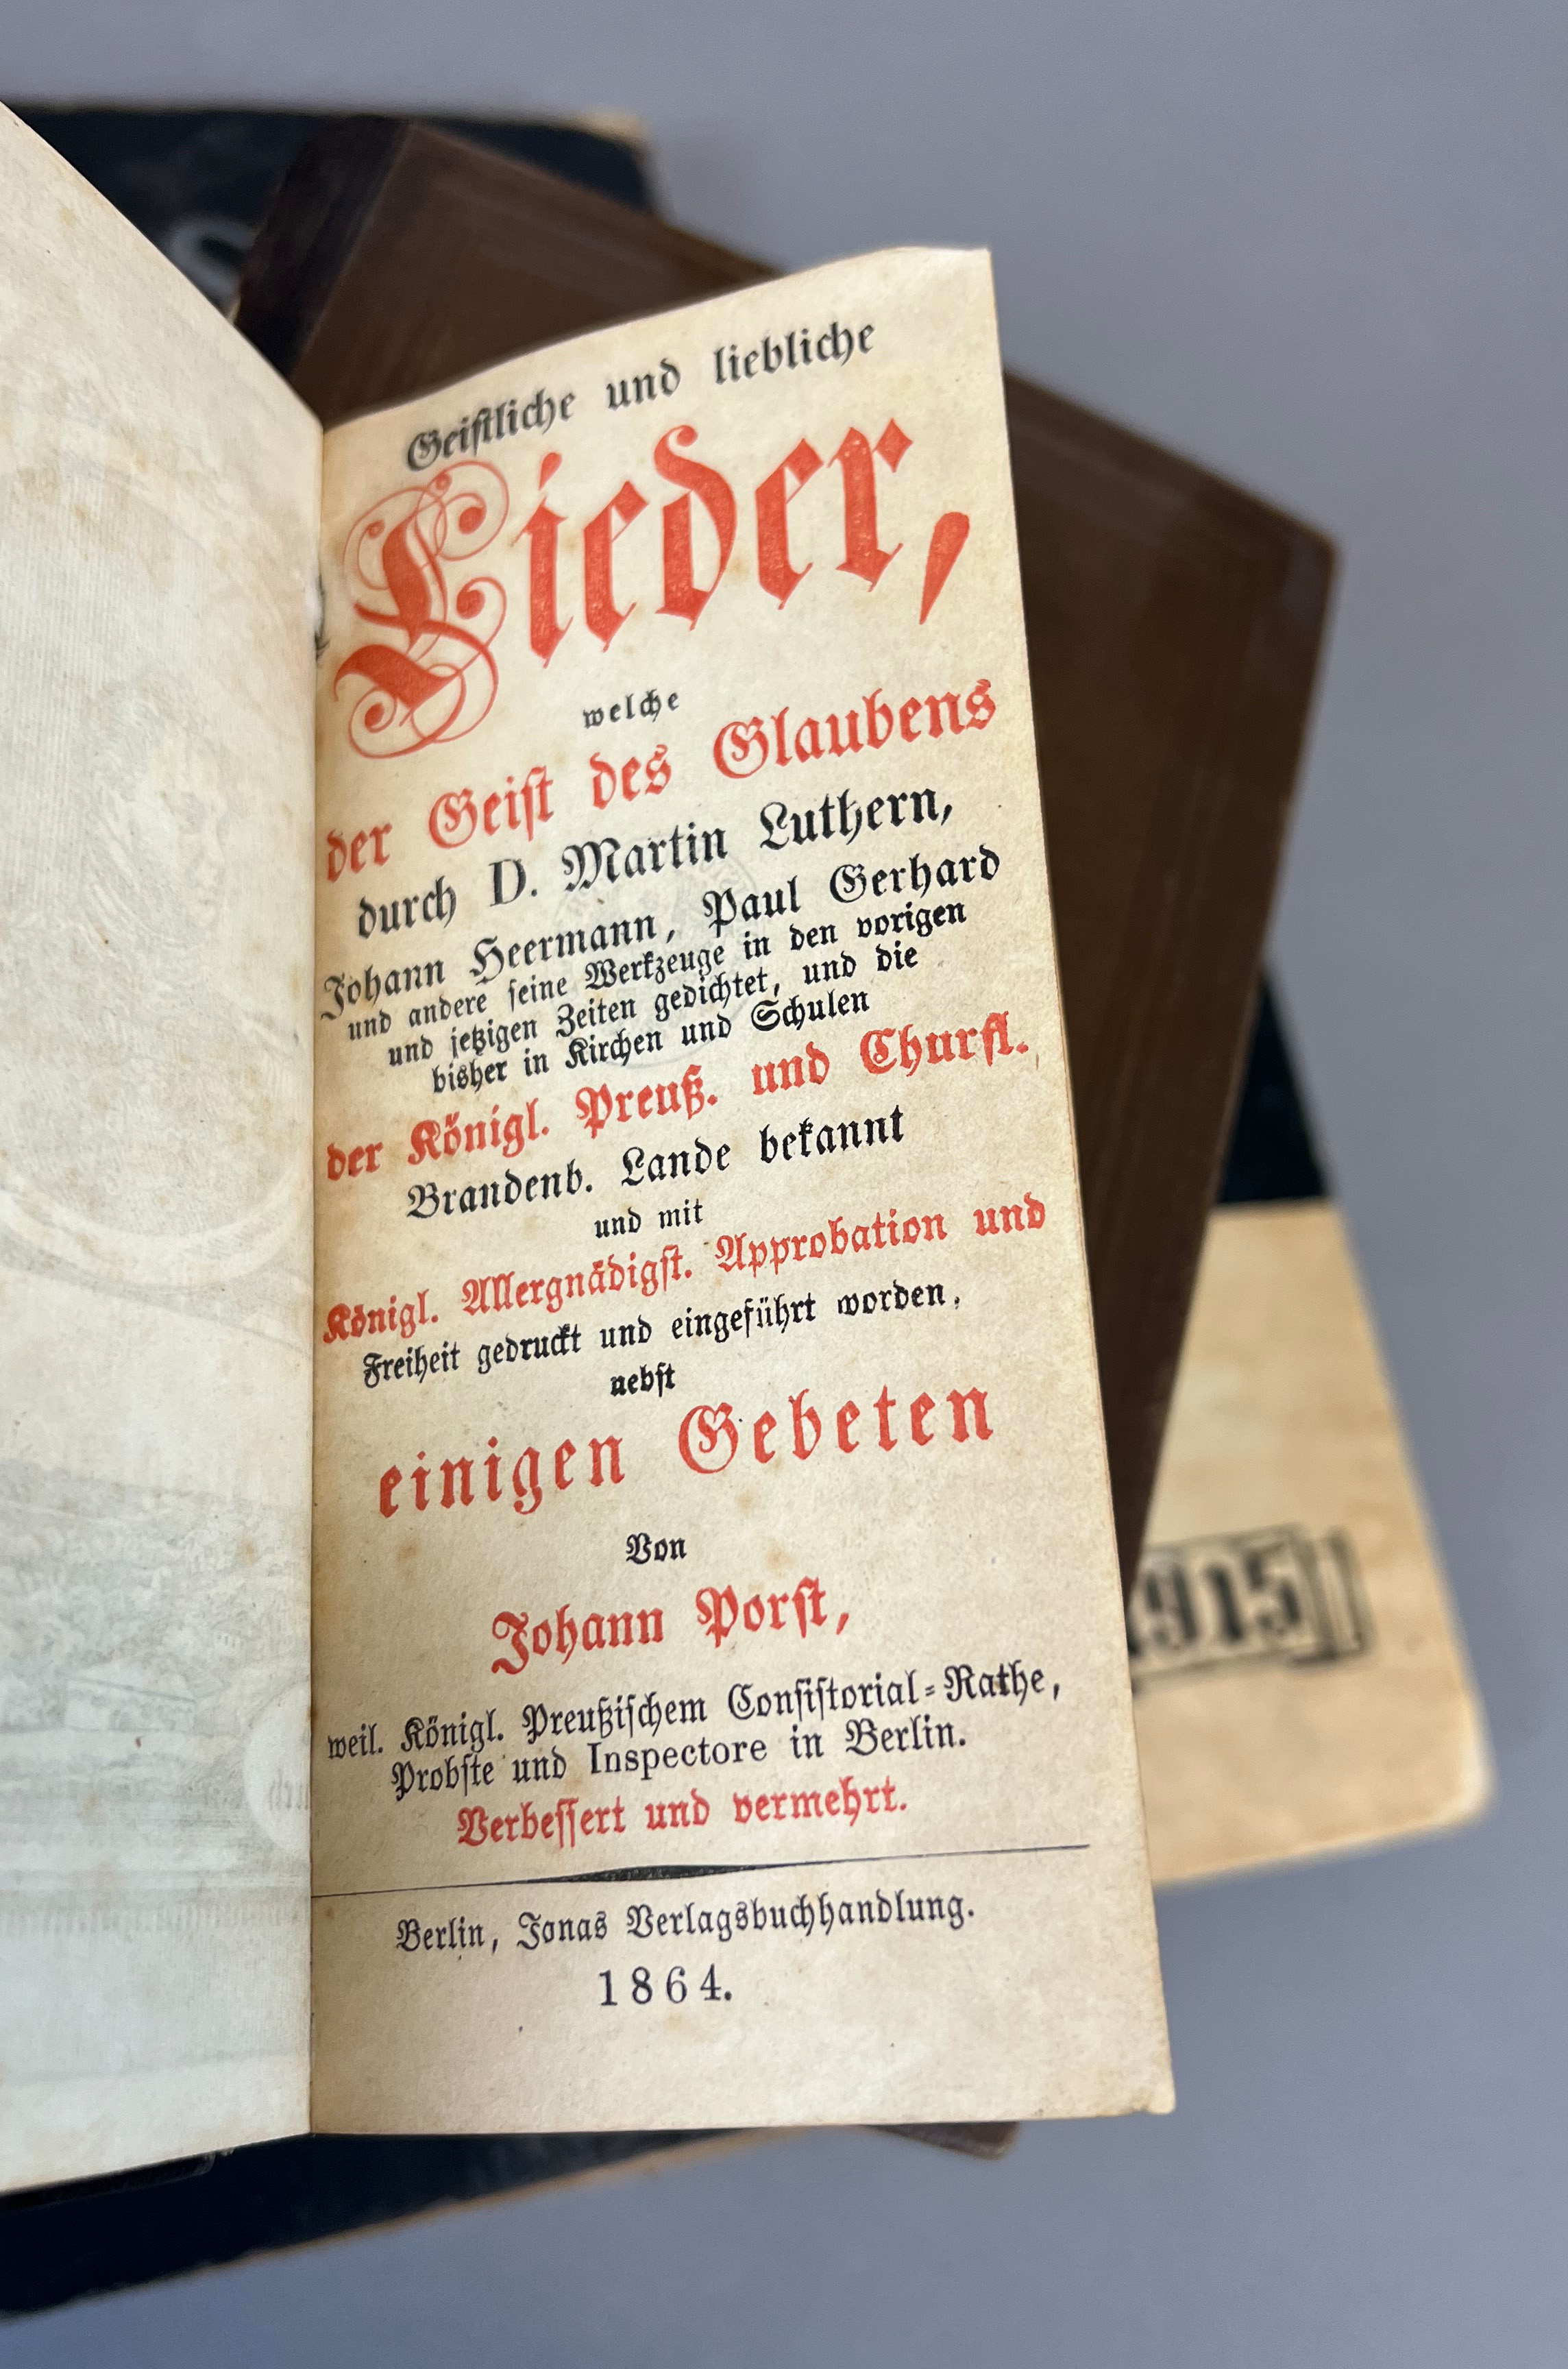 Geistliche und liebliche
Lieder,
welche
der Geist des Glaubens
durch D. Martin Luthern,
Johann Heermann, Paul Gerhard
und andere seine Werkzeuge in den vorigen
und jetzigen Zeiten gedichtet, und die
bisher in Kirchen und Schulen
der Königl. Preuß. und Churfl.
Brandenb. Lande bekannt
und mit
Königl. Allergnädigst. Approbation und
Freiheit gedruckt und eingeführt worden,
nebst
einigen Gebeten
Von
Johann Porst,
weil. Königl. Preußischem Consistorial-Rathe,
Probste und Inspectore in Berlin.
Verbessert und vermehrt.
Berlin, Jonas Verlagsbuchhandlung.
1864.
1915